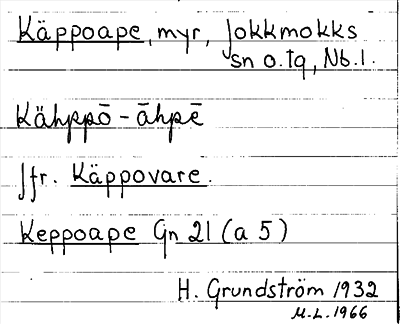 Käppoape, myr, Jokkmokks
sn o. tg, Nb. l.
Kähppō - āhpē
Jfr. Käppovare.
Keppoape Gn 21 (a 5)
H. Grundström 1932
M.L. 1966